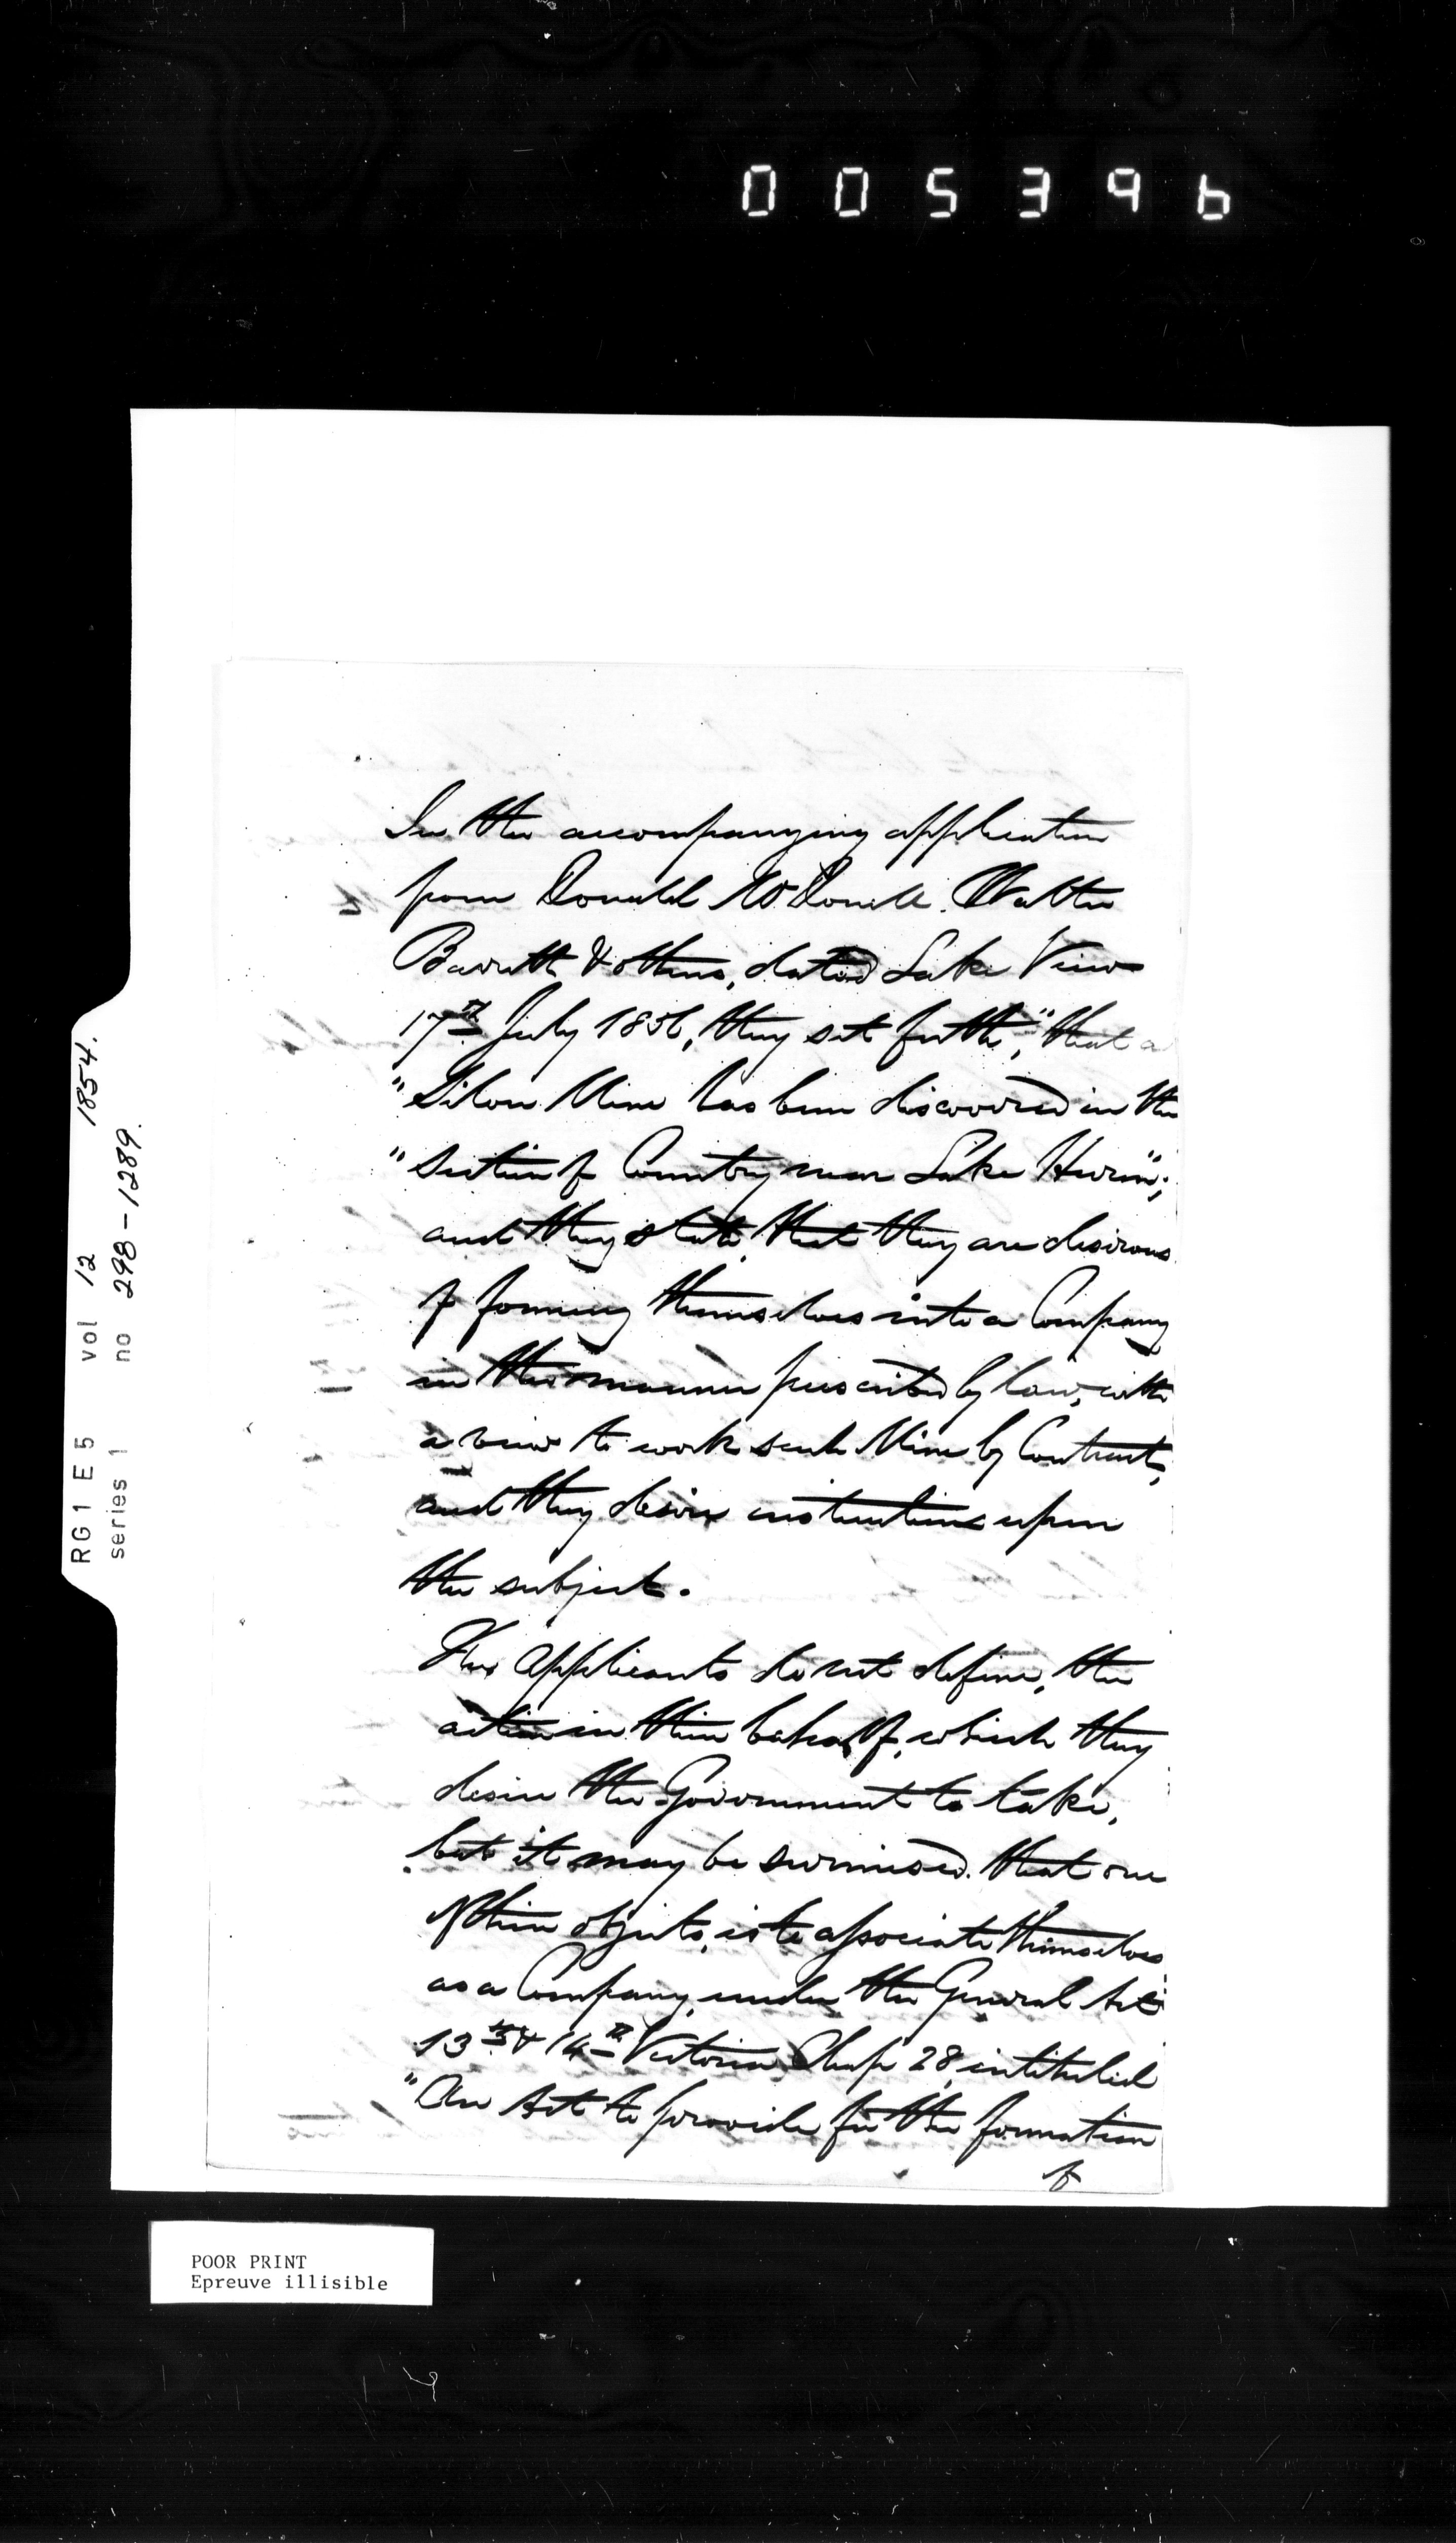 005396
RG1 E5 vol 12 1854.
series 1 no 298-1289.
In the accompanying application
from Donald McDonell. Walter
Barrett & others, dated Lake View
17th July 1856, they set forth, "that a
"Silver Mine has been discovered in the
"section of Country near Lake Huron";
and they state, that they are desirous
of forming themselves into a Company
in the manner prescribed by law, with
a view to work such Mine by Contract,
and they desire instructions upon
the subject.
The applicants do not define, the
action in their behalf, which they
desire the Government to take,
but it may be surmised. that one
of their objects, is to associate themselves
as a Company, under the General Act
13th & 14th Victoria Chap 28, intituled
"An Act to provide for the formation
of
POOR PRINT
Epreuve illisible